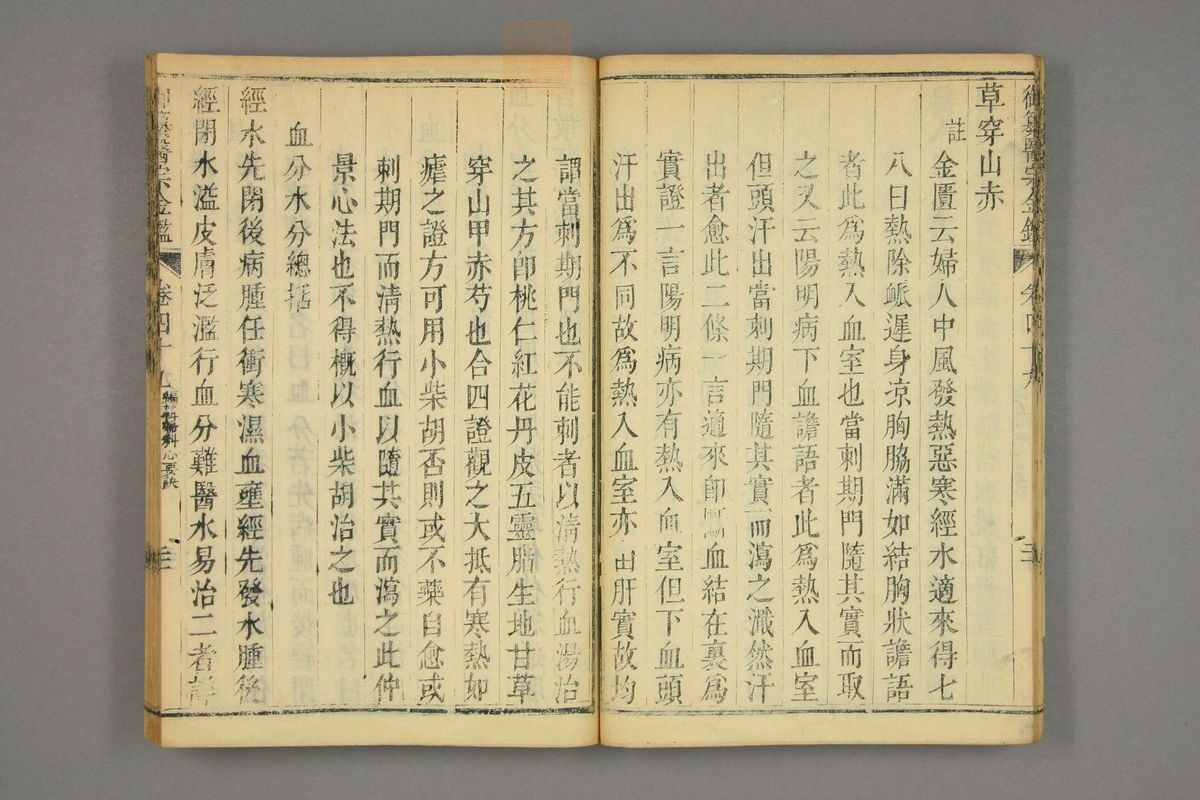 草穿山赤
註
金匱云婦人中風發熱惡寒經水適來得七
八日熱除脈遲身凉胸脇滿如結胸狀譫語
者此爲熱入血室也當刺期門隨其實而取
之又云陽明病下血譫語者此爲熱入血室
但頭汗出當刺期門隨其實而瀉之濈然汗
出者愈此二條一言適來卽斷血結在裏爲
實證一言陽明病亦有熱入血室但下血頭
汗出爲不同故爲熱入血室亦由肝實故均
謂當刺期門也不能刺者以淸熱行血湯治
之其方卽桃仁紅花丹皮五靈脂生地甘草
穿山甲赤芍也合四證觀之大抵有寒熱如
瘧之證方可用小柴胡否則或不藥自愈或
刺期門而淸熱行血以隨其實而瀉之此仲
景心法也不得槪以小柴胡治之也
血分水分總括
經水先閉後病腫任衝寒濕血壅經先發水腫後
經閉水溢皮膚泛濫行血分難醫水易治二者詳
御纂醫宗金鑑
卷四十九
編輯婦科心要訣